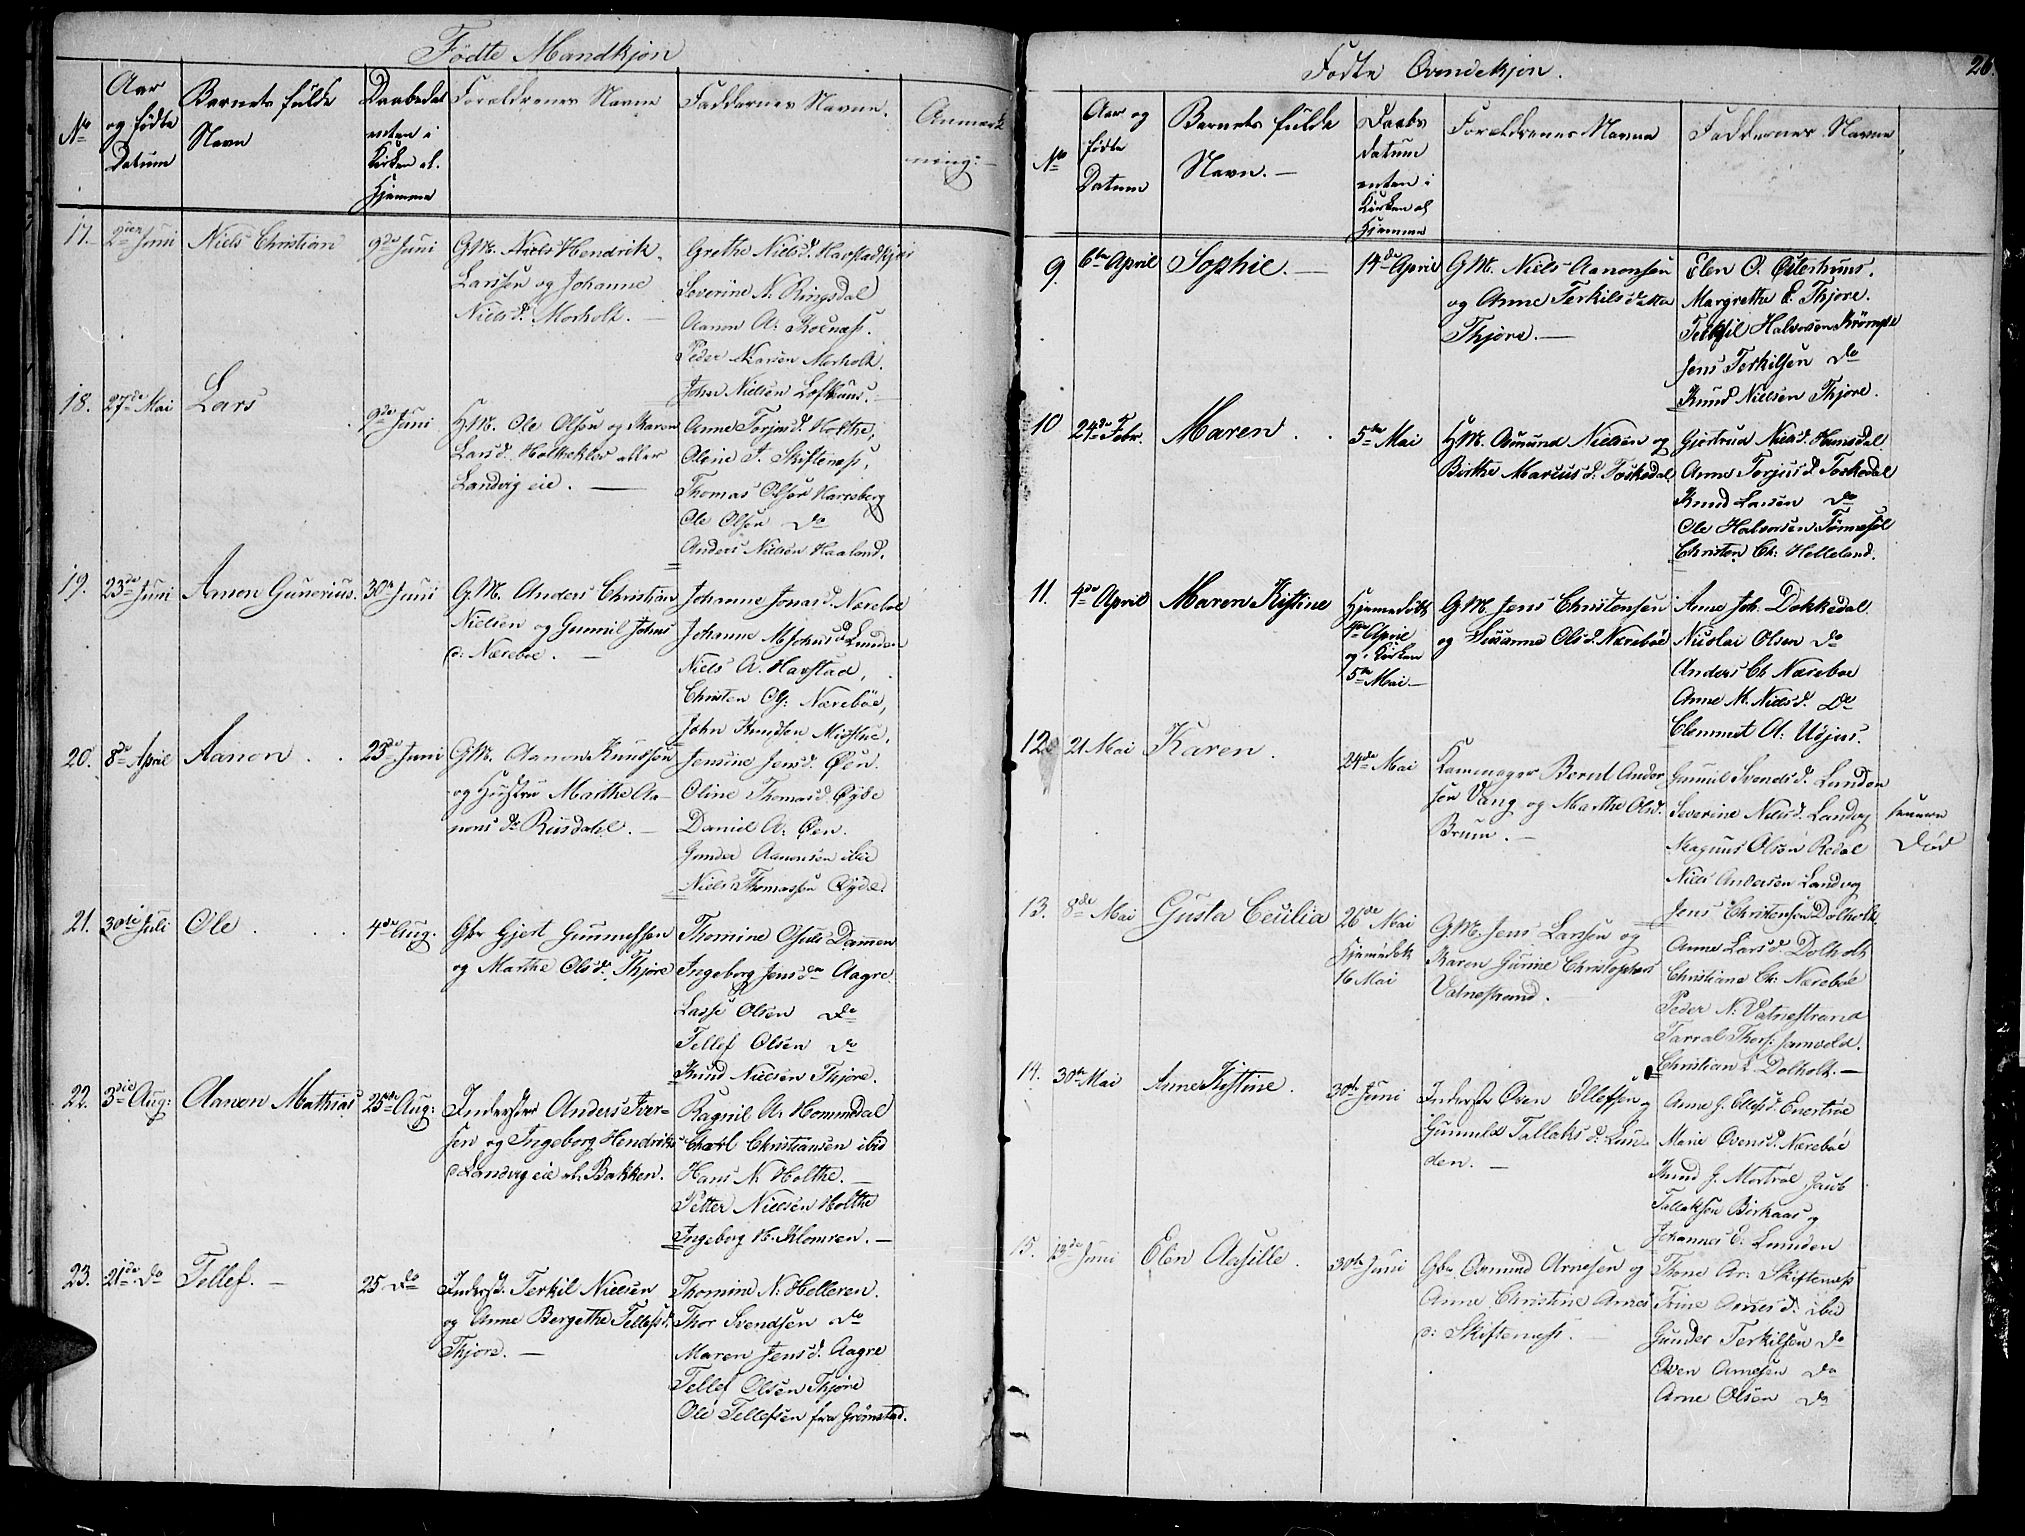 Fødte Mandkjøn
No
Aar og fødte Datum
Barnets fulde Navn
Daabsdat enten i Kirken el. Hjemme
Forældrenes Navne
Faddernes Navne.
Anmærkning:
17. 2den Juni Niels Christian 9de Juni
G.M. Niels Hendrik
Larssen og Johanne
Nielsd. Morholt.
Grethe Nielsd. Havstadkjær
Severine N. Ringsdal
Aanon A. Roenæss.
Peder Morholt.
John Nielsen Lofthuus.
18. 27de Mai Lars 9de Juni
H.M. Ole Olsen og Maren
Larsd. eller
Landvig eie.
Anne Torjusd. Holthe,
Oline T. Skiftenæss,
Thomas Olsen Harreberg
Ole Olsen do
Anders Nielsen Haaland.
19. 23de Juni Aanon Gunerius. 30te Juni
G.M. Anders Christian
Nielsen og Gunnil Johns
d: Nærebøe.
Johanne Jonasd. Nærebøe
Johanne M. Johnsd. Lunden
Niels A. Havstad,
Christen Ch: Nærebøe,
John Knudsen
20. 8de April Aanon 23de Juni
G.M. Aanon Knudsen
og Hustru Marthe Aa-
nons de Riisdahl.
Jensine Jensd. Øen.
Oline Thomasd. Øyde
Daniel A: Øen.
Gunder Aanonsen ibid
Niels Thomassen Øyde.
21. 30te Juli Ole 4de Aug.
Gbr Gjert Gunnessen
og Marthe Olsd. Thjøre
Thomine Dammen
Ingeborg Jensd. Aagre.
Lasse Olsen do
Tellef Olsen do
Knud Nielsen Thjøre.
22. 3die Aug: Aanon Mathias 25de Aug:
Inderster Anders Iver-
sen og Ingeborg Hendriks
d Landvig eie el. Bakken.
Ragnil A: Hommedal
Charl Christiansen ibid
Hans N. Holthe.
Petter Nielsen Holthe
Ingeborg H. Klomren.
23. 21de do Tellef. 25 do
Inderst. Terkil Nielsen
og Anne Bergethe Tellefsd.
Thjøre.
Thomine N. Helleren.
Thor Svendsen do
Maren Jensd. Aagre
Tellef Olsen Thjøre
Ole Tellefsen fra Grømstad.
Fødte Qvindekjøn.
26.
No
Aar og fødte Datum
Barnets fulde Navn.
Daabs datum enten i Kirken el Hjemme
Forældrenes Navne
Faddernes Navne
9. 6te April Sophie. 14de April
G.M. Niels Aanonsen
og Anne Terkilsdatter
Thjøre.
Elen O. Østerhuus.
Margrethe E. Thjøre.
Terkil Halvorsen
Jens Terkilsen do
Knud Nielsen Thjøre.
10 24de Febr. Maren 5te Mai
H.M. Amund Nielsen og
Birthe Marcusd. Toskedal
Gjertrud Nielsd. Hamsdal
Anne Torjusd. Toskedal
Knud Larsen do
Ole Halvorsen Tømesøl
Christen Ch: Helleland.
11. 4de April Maren Kistine
Hjemmedøbt
April
og i Kirken
5te Mai
G.M. Jens Christensen
og Susanne Olsd. Nærebøe
Anne Joh. Dokkedal
Nicolai Olsen do
Anders Ch Nærebøe
Anne M. Nielsd. do
Clemmet A.
12 21 Mai Karen 24de Mai
Bernt Ander
sen Vang og Marthe Olsd.
Bruun.
Gunnil Svendsd. Lunden
Severine Nielsd. Landvig
Magnus Olsen Redal
Niels Andersen Landvig
Jens Christensen Dolholt
Død
13. 8de Mai Gusta Cecilia
26de Mai
Hjemmedøbt
16 Mai
G.M. Jens Larssen og
Karen Gurine Christophers
Vatnestrand.
Anne Larsd Dolholt
Christiane Ch: Nærebøe
Peder N. Vatnestrand
Tarral Thors: Jomvold.
Christian L Dolholt.
14. 30te Mai Anne Kistine. 30te Juni
Inderste Oven Ellefsen og
Gunnild Tallaksd: Lun-
den.
Anne G. Ellefsd. Enertrøe
Marie Ovensd. Nærebøe
Knud J. Mortrøe, Jacob
Tallaksen Birkaas og
Johannes E: Lunden
15. 13de Juni Elen Aasille. 30te Juni
Gbr Osmund Arnesen og
Anne Christine Arnes
d: Skiftenæss.
Thone Ar: Skiftenæss
Trine Arnesd. ibid
Gunder Terkilsen do
Oven Arnesen do
Arne Olsen do